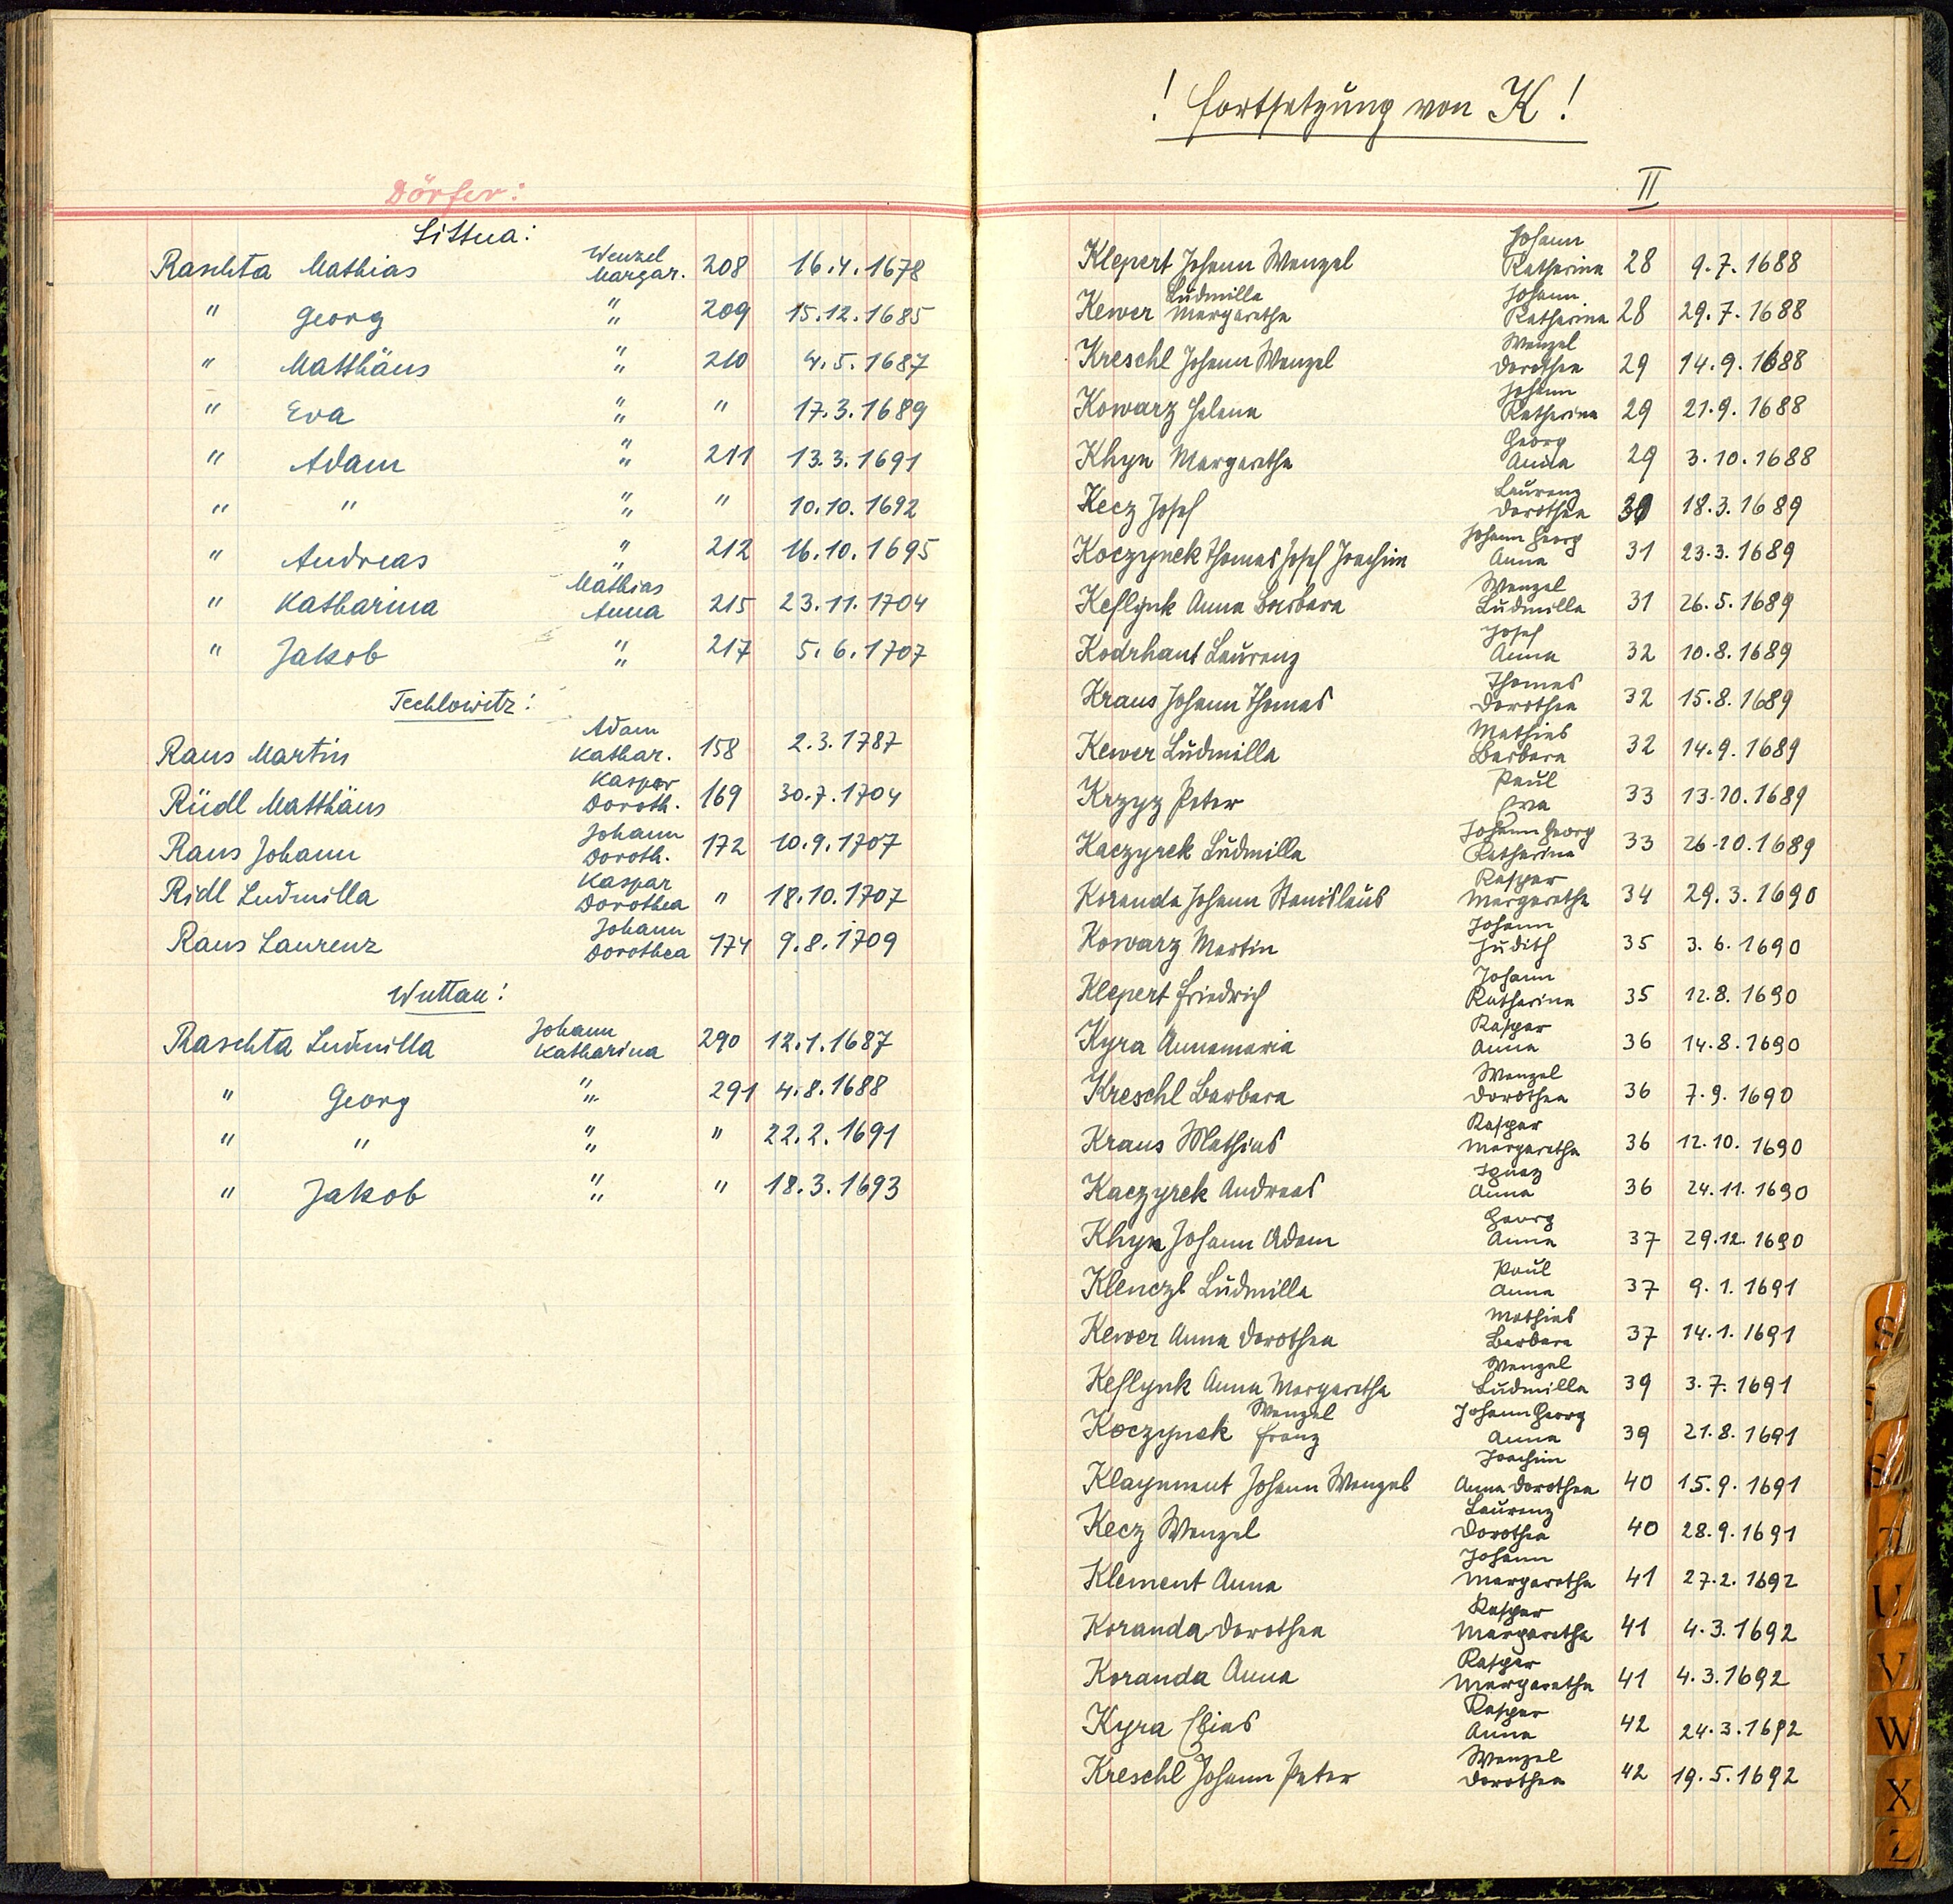 Dörfer:
Sittna:
Raschta Mathias Wenzel Margar. 208 16.4.1678
" Georg " " 209 15.12.1685
" Matthäus " " 210 4.5.1687
" Eva " " " 17.3.1689
" Adam " " 211 13.3.1691
" " " " " 10.10.1692
" Andreas " " 212 16.10.1695
" Katharina Mathias Anna 215 23.11.1704
" Jakob " " 217 5.6.1707
Techlowitz:
Raus Martin Adam Kathar. 158 2.3.1787
Rüdl Matthäus Kaspar Doroth. 169 30.7.1704
Raus Johann Johann Doroth. 172 10.9.1707
Ridl Ludmilla Kaspar Dorothea " 18.10.1707
Raus Laurenz Johann Dorothea 174 9.8.1709
Wuttau:
Raschta Ludmilla Johann Katharina 290 12.1.1687
" Georg " " 291 4.8.1688
" " " " " 22.2.1691
" Jakob " " " 18.3.1693
! Fortsetzung von K !
II
Klepert Johann Wenzel Johann Katharina 28 9.7.1688
Kewer Ludmilla Margaretha Johann Katharina 28 29.7.1688
Kreschl Johann Wenzel Wenzel Dorothea 29 14.9.1688
Kowarz Helena Johann Katharina 29 21.9.1688
Khyn Margaretha Georg Anna 29 3.10.1688
Kecz Josef Laurenz Dorothea 18.3.1689
Koczynek Thomas Josef Joachim Johann Georg Anna 31 23.3.1689
Keflynk Anna Barbara Wenzel Ludmilla 31 26.5.1689
Kodrhant Laurenz Josef Anna 32 10.8.1689
Kraus Johann Thomas Thomas Dorothea 32 15.8.1689
Kewer Ludmilla Mathias Barbara 32 14.9.1689
Krzyz Peter Paul Eva 33 13.10.1689
Kaczyrek Ludmilla Johann Georg Katharina 33 26.10.1689
Koranda Johann Stanislaus Kaspar Margaretha 34 29.3.1690
Kowarz Martin Johann Judith 35 3.6.1690
Klepert Friedrich Johann Katharina 35 12.8.1690
Kyra Annamaria Kaspar Anna 36 14.8.1690
Kreschl Barbara Wenzel Dorothea 36 7.9.1690
Kraus Mathias Kaspar Margaretha 36 12.10.1690
Kaczyrek Andreas Ignaz Anna 36 24.11.1690
Khyn Johann Adam Georg Anna 37 29.12.1690
Klenczl Ludmilla Paul Anna 37 9.1.1691
Kewer Anna Dorothea Mathias Barbara 37 14.1.1691
Keflynk Anna Margaretha Wenzel Ludmilla 39 3.7.1691
Koczynek Wenzel Franz Johann Georg Anna 39 21.8.1691
Klayment Johann Wenzel Joachim Anna Dorothea 40 15.9.1691
Kecz Wenzel Laurenz Dorothea 40 28.9.1691
Klement Anna Johann Margaretha 41 27.2.1692
Koranda Dorothea Kaspar Margaretha 41 4.3.1692
Koranda Anna Kaspar Margaretha 41 4.3.1692
Kyra Elias Kaspar Anna 42 24.3.1692
Kreschl Johann Peter Wenzel Dorothea 42 19.5.1692
S
U
V
W
X
Z